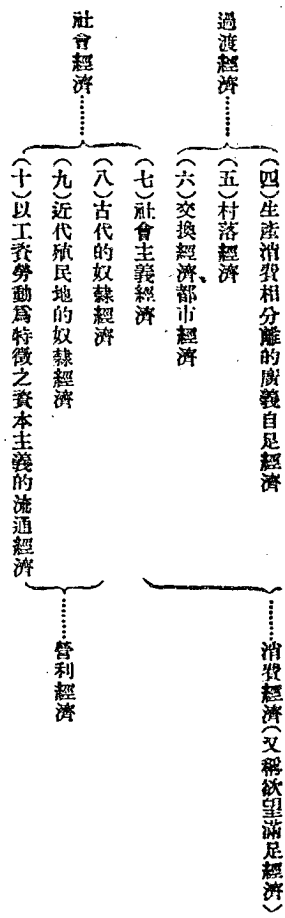 過渡經濟……
(四)生產消費相分離的廣義自足經濟
(五)村落經濟
(六)交換經濟、都市經濟
……消費經濟(又稱欲望滿足經濟)
社會經濟……
(七)社會主義經濟
(八)古代的奴隸經濟
(九)近代殖民地的奴隸經濟
(十)以工資勞動爲特徵之資本主義的流通經濟
……營利經濟